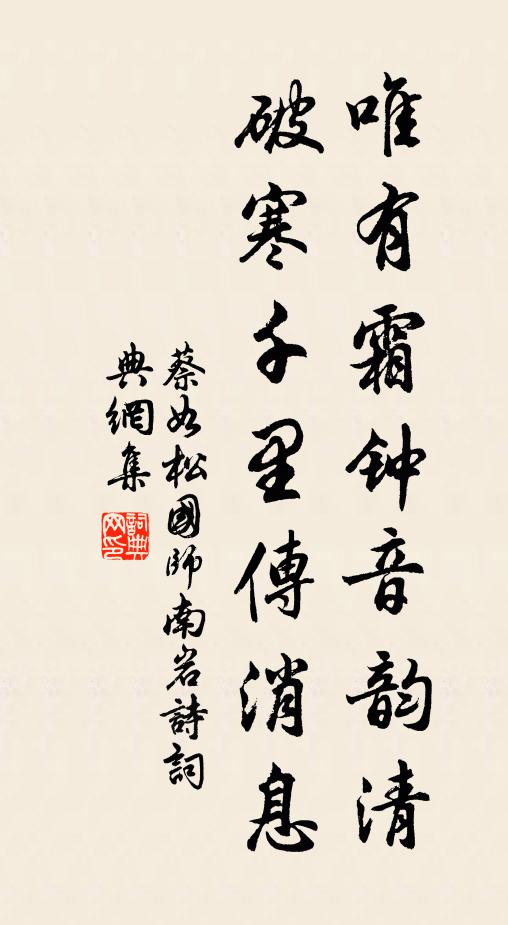 唯有霜钟音韵清
破寒千里傳消息
蔡如松國師南岩詩詞
典網集
詞典網印